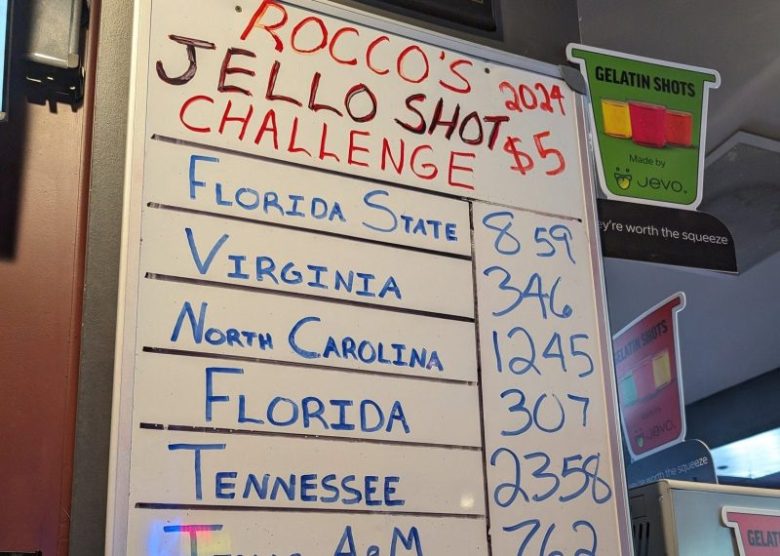 ROCCO'S
JELLO SHOT 2024
CHALLENGE $5
FLORIDA STATE 859
VIRGINIA 346
NORTH CAROLINA 1245
FLORIDA 307
TENNESSEE 2358
A&M 762
GELATIN SHOTS
Made by
Jevo.
y're worth the squeeze
GELATIN SHOTS
Jevo.
worth the squeeze
GELAT